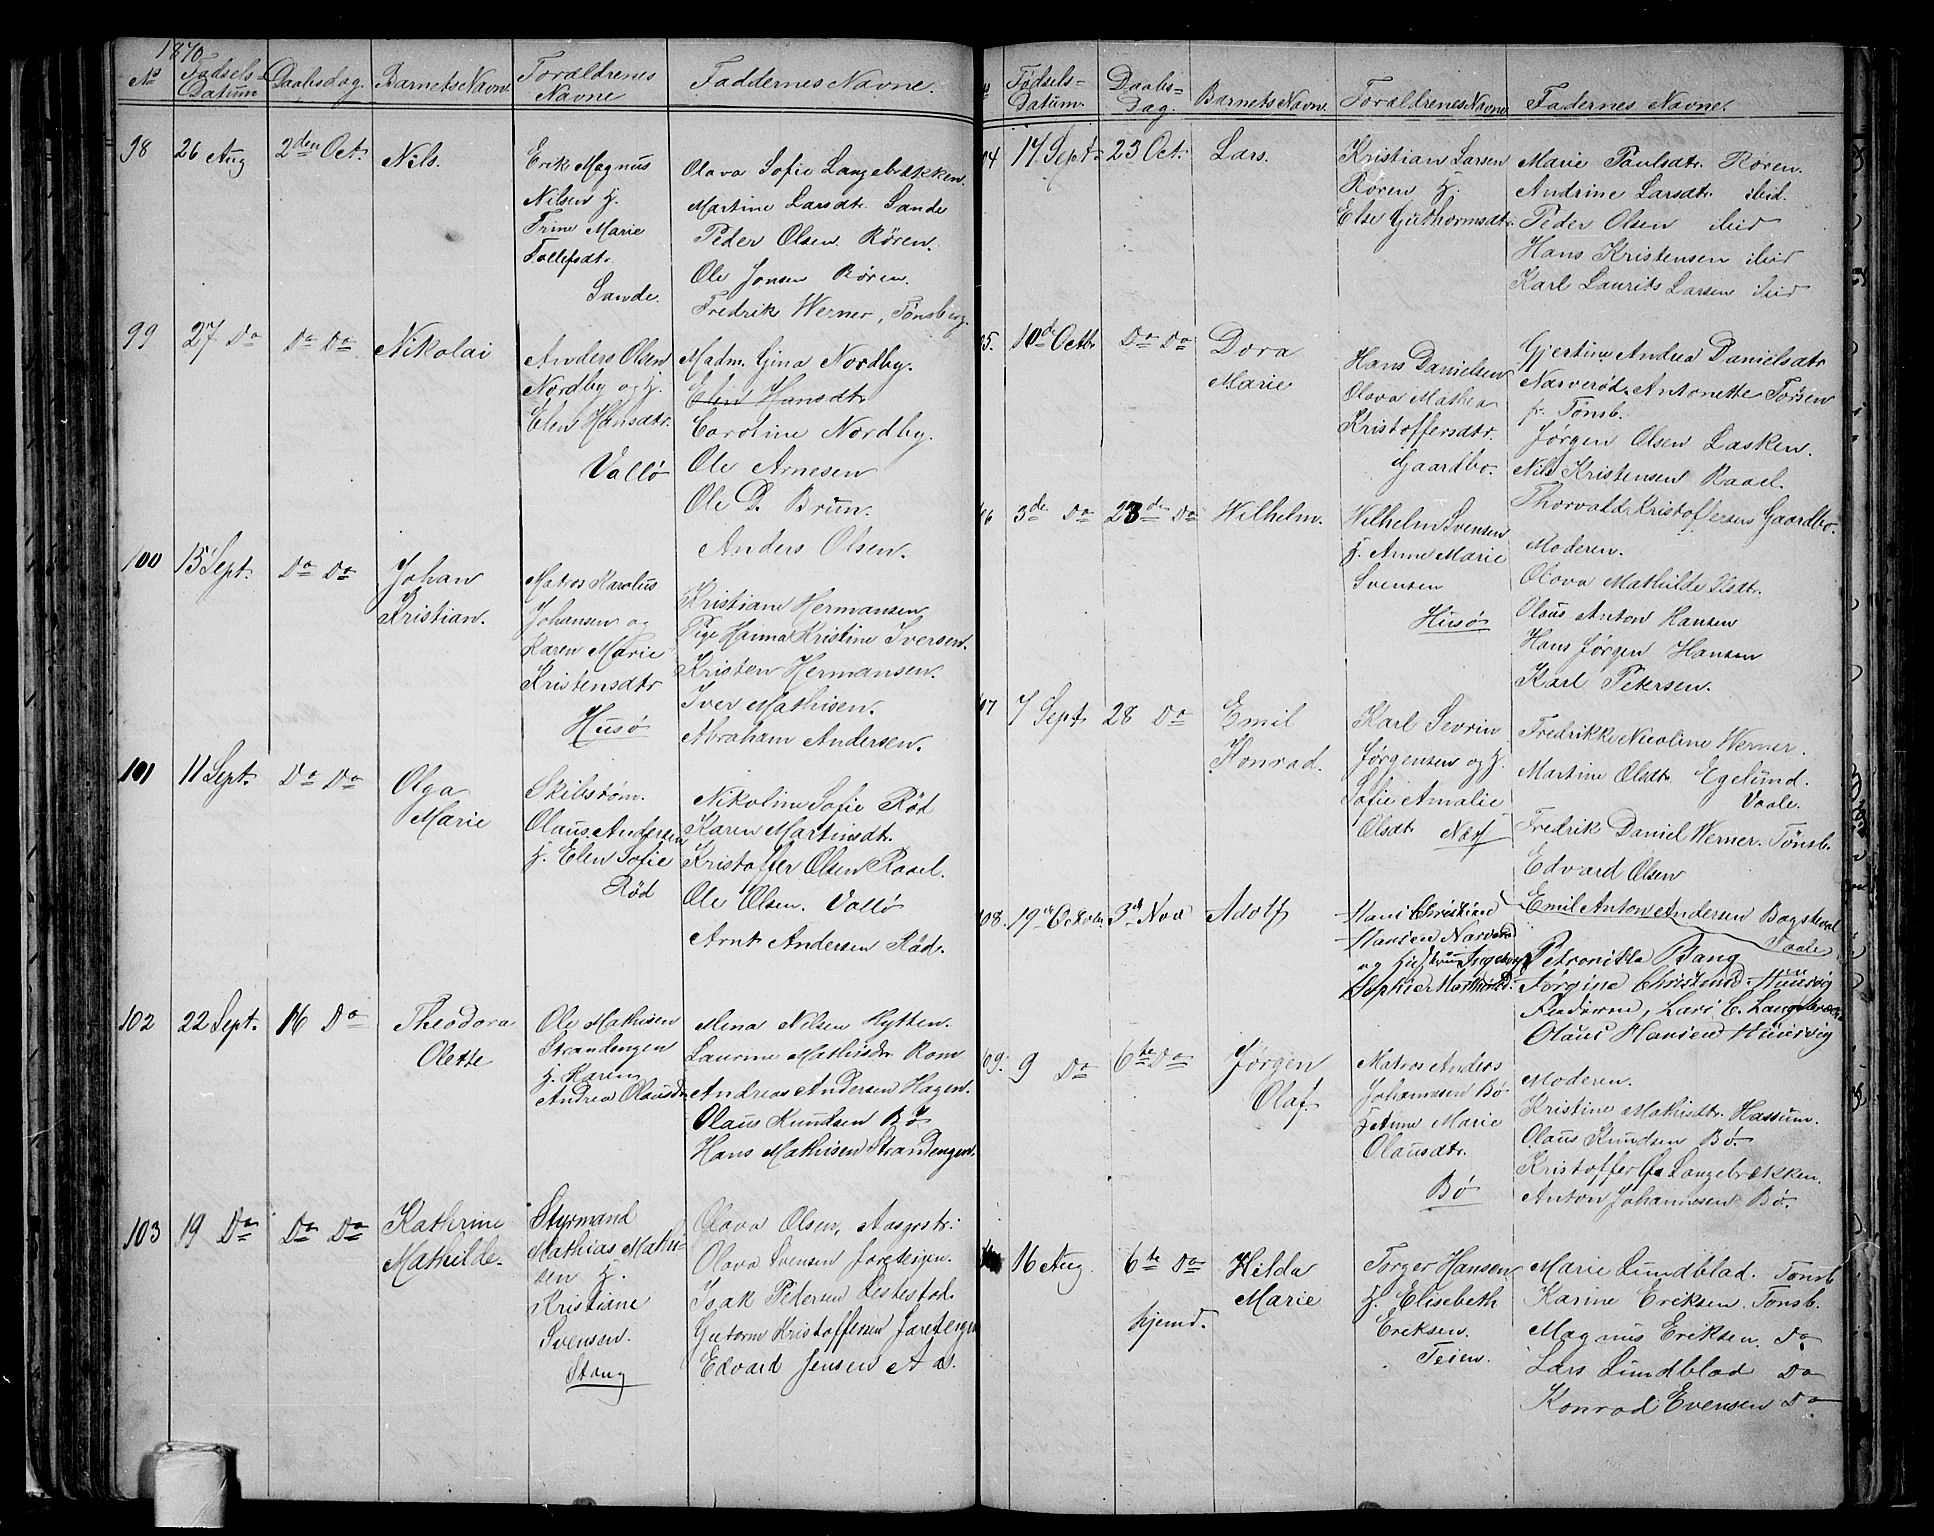 1870
No
Fødsels-
Datum
Daabsdag.
Barnets Navn.
Forældrenes
Navne
Faddernes Navne.
98
26 Aug
2den Oct.
Nils.
Erik Magnus
Nilsen H.
Trine Marie
Tollefsdtr.
Sande.
Olava Sofie Langebrækken.
Martine Larsdt. Sande
Peder Olsen Røren.
Ole Jonsen Røren.
Fredrik Werner, Tønsberg.
99
27 Do
Do Do
Nikolai
Anders Olsen
Nordby og H.
Elen Hansdtr.
Vallø
Madm. Gina Nordby.
Elen Hansdtr
Caroline Nordby.
Ole Arnesen
Ole D. Brun.
Anders Olsen.
100
15 Sept.
Do Do
Johan
Kristian.
Matros Karolus
Johansen og
Karen Marie
Kristensdtr
Husø
Kristiane Hermansen
Pige Hanna Kristine Iversen.
Kristen Hermansen.
Iver Mathisen.
Abraham Andersen.
101
11 Sept.
Do Do
Olga
Marie
Skibstøm.
Olaus Andersen
H. Elen Sofie
Rød
Nikoline Sofie Rød
Karen Martinsdtr.
Kristoffer Olsen Raael.
Ole Olsen. Vallø
Arnt Andersen Rød.
102
22 Sept.
16 Do
Theodora
Olette
Ole Mathisen
Strandengen
H. Karen
Andrea Olausdr.
Mina Nilsen Rytten.
Laurine Mathisdr. Rom
Andreas Andersen Hagen.
Olaus Knudsen Bø
Hans Mathisen Strandengen.
103
19 Do
Do Do
Kathrine
Mathilde.
Styrmand
Mathias Mathi-
sen H.
Kristiane
Svensen.
Stang
Olava Olsen, Aasgstr.
Olava Svensen Jareteigen.
Isak Pedersen Lestestad.
Gutorm Kristoffersen Jareteigen
Edvard Jensen Aas.
Fødsels-
Datum.
Daabs-
Dag.
Barnets Navn.
Forældrenes Navne
Fadernes Navne.
04
17 Sept.
23 Oct.
Lars.
Kristian Larsen
Røren H.
Else Guthormsdtr.
Marie Paulsdtr. Røren.
Andrine Larsdtr ibid.
Peder Olsen ibid
Hans Kristensen ibid
Karl Laurits Larsen ibid
05.
10de Octbr
Do Do
Dora
Marie
Hans Danielsen
Olava Mathea
Kristoffersdtr.
Gaardbo.
Gjertine Andrea Danielsdtr
Narverød. Antonette Torsen
fr. Tønsb.
Jørgen Olsen Lasken.
Nils Kristensen Raael.
Thorvald Kristoffersens Gaardbo.
06
3de Do
23de Do
Wilhelm.
Wilhelm Svensen
H. Anne Marie
Svensen
Husø
Moderen.
Olava Mathilde Olsdtr.
Olaus Anton Hansen
Hans Jørgen Hansen
Karl Petersen.
07
7 Sept
28 Do
Emil
Konrad.
Karl Sevrin
Jørgensen og H.
Sofie Amalie
Olsdtr Næs
Fredrikke Nicoline Werner.
Martine Olsdtr Egelund.
Vaale.
Fredrik Daniel Werner. Tønsb.
Edvard Olsen
Emil Anton Andersen Bagskeval
108.
19de Octobr.
3de Nov
Adolf
Hans Christian
Hansen Narverød
Petronille Bang
Jørgine Christine Husvig
Olaus Hansen Husvig
09.
9 Do
6te Do
Jørgen
Olaf.
Matros Anders
Johannsen Bø
H Anne Marie
Olausdtr.
Bø
Moderen.
Kristine Mathisdtr. Hassum.
Olaus Knudsen Bø.
Kristoffer Langebrækken.
Anton Johannesen Bø.
16 Aug.
6te Do
hjemd.
Hilda
Marie
Torger Hansen
H. Elisebeth
Eriksen.
Teien.
Marie Lundblad. Tønsb
Karine Eriksen. Tønsb.
Magnus Eriksen. Do
Lars Lundblad Do
Konrad Evensen Do